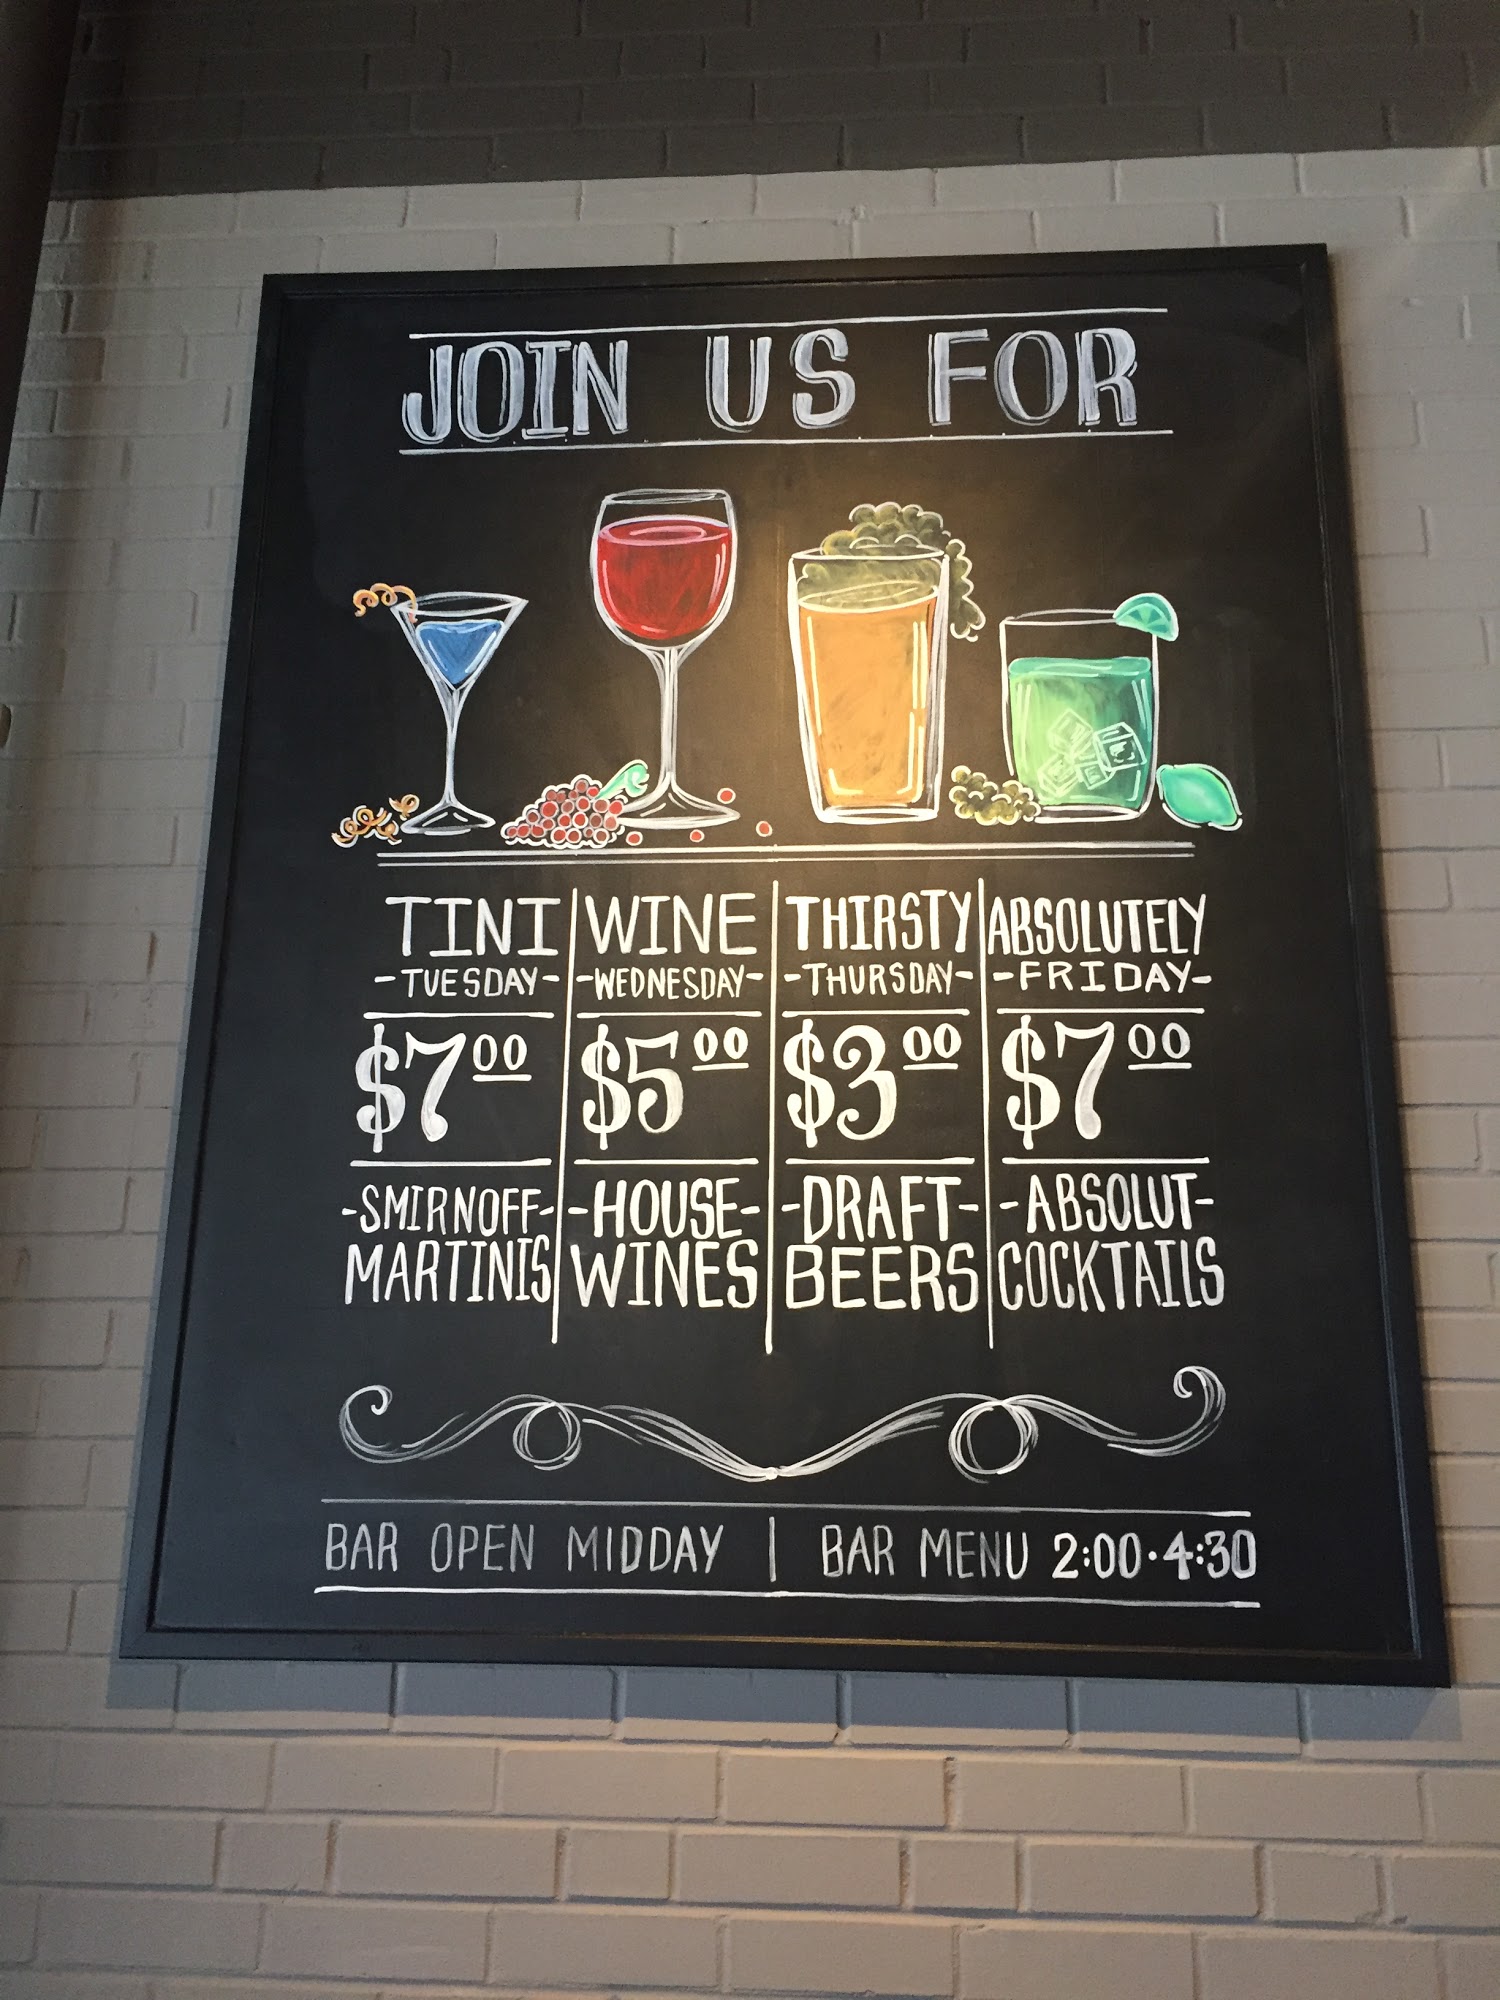 JOIN US FOR
TINI
-TUESDAY-
$7 00
-SMIRNOFF-
MARTINIS
WINE
-WEDNESDAY-
$5 00
-HOUSE-
WINES
THIRSTY
-THURSDAY-
$3 00
-DRAFT-
BEERS
ABSOLUTELY
-FRIDAY-
$7 00
-ABSOLUT-
COCKTAILS
BAR OPEN MIDDAY | BAR MENU 2:00·4:30